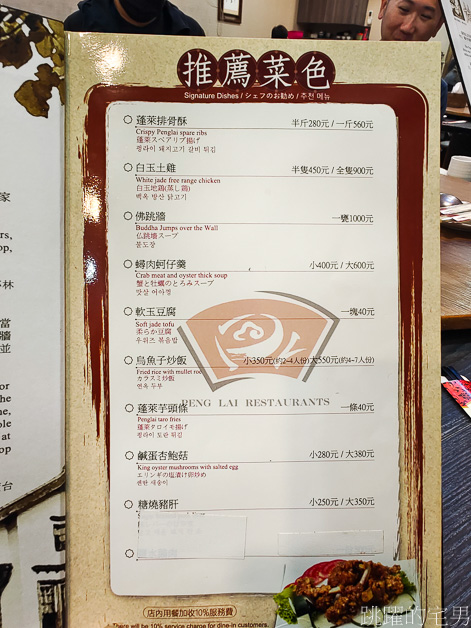 推薦菜色
Signature Dishes / シェフのお勧め / 추천 메뉴
蓬萊排骨酥 半斤280元 / 一斤560元
Crispy Penglai spare ribs
蓬萊スペアリブ揚げ
펑라이 돼지고기 갈비 튀김
白玉土雞 半隻450元 / 全隻900元
White jade free range chicken
白玉地鶏(蒸し鶏)
백옥 방산 닭고기
佛跳牆 一甕1000元
Buddha Jumps over the Wall
仏跳墻スープ
불도장
蟳肉蚵仔羹 小400元 / 大600元
Crab meat and oyster thick soup
蟹と牡蠣のとろみスープ
맛살 어아껑
軟玉豆腐 一塊40元
Soft jade tofu
柔らか豆腐
烏魚子炒飯 小350元(約2~4人份)大550元(約4~7人份)
Fried rice with mullet roe
カラスミ炒飯
연옥 두부
PENG LAI RESTAURANTS
蓬萊芋頭條 一條40元
Penglai taro fries
蓬萊タロイモ揚げ
펑라이 토란 튀김
鹹蛋杏鮑菇 小280元 / 大380元
King oyster mushrooms with salted egg
エリンギの塩漬け卵炒め
糖燒豬肝 小250元 / 大350元
店內用餐加收10%服務費
There will be 10% service charge for dine-in customers.
跳躍的宅男
家
rs,
op,
林
當
牆
並
or
the
ne,
ole
at
op
台